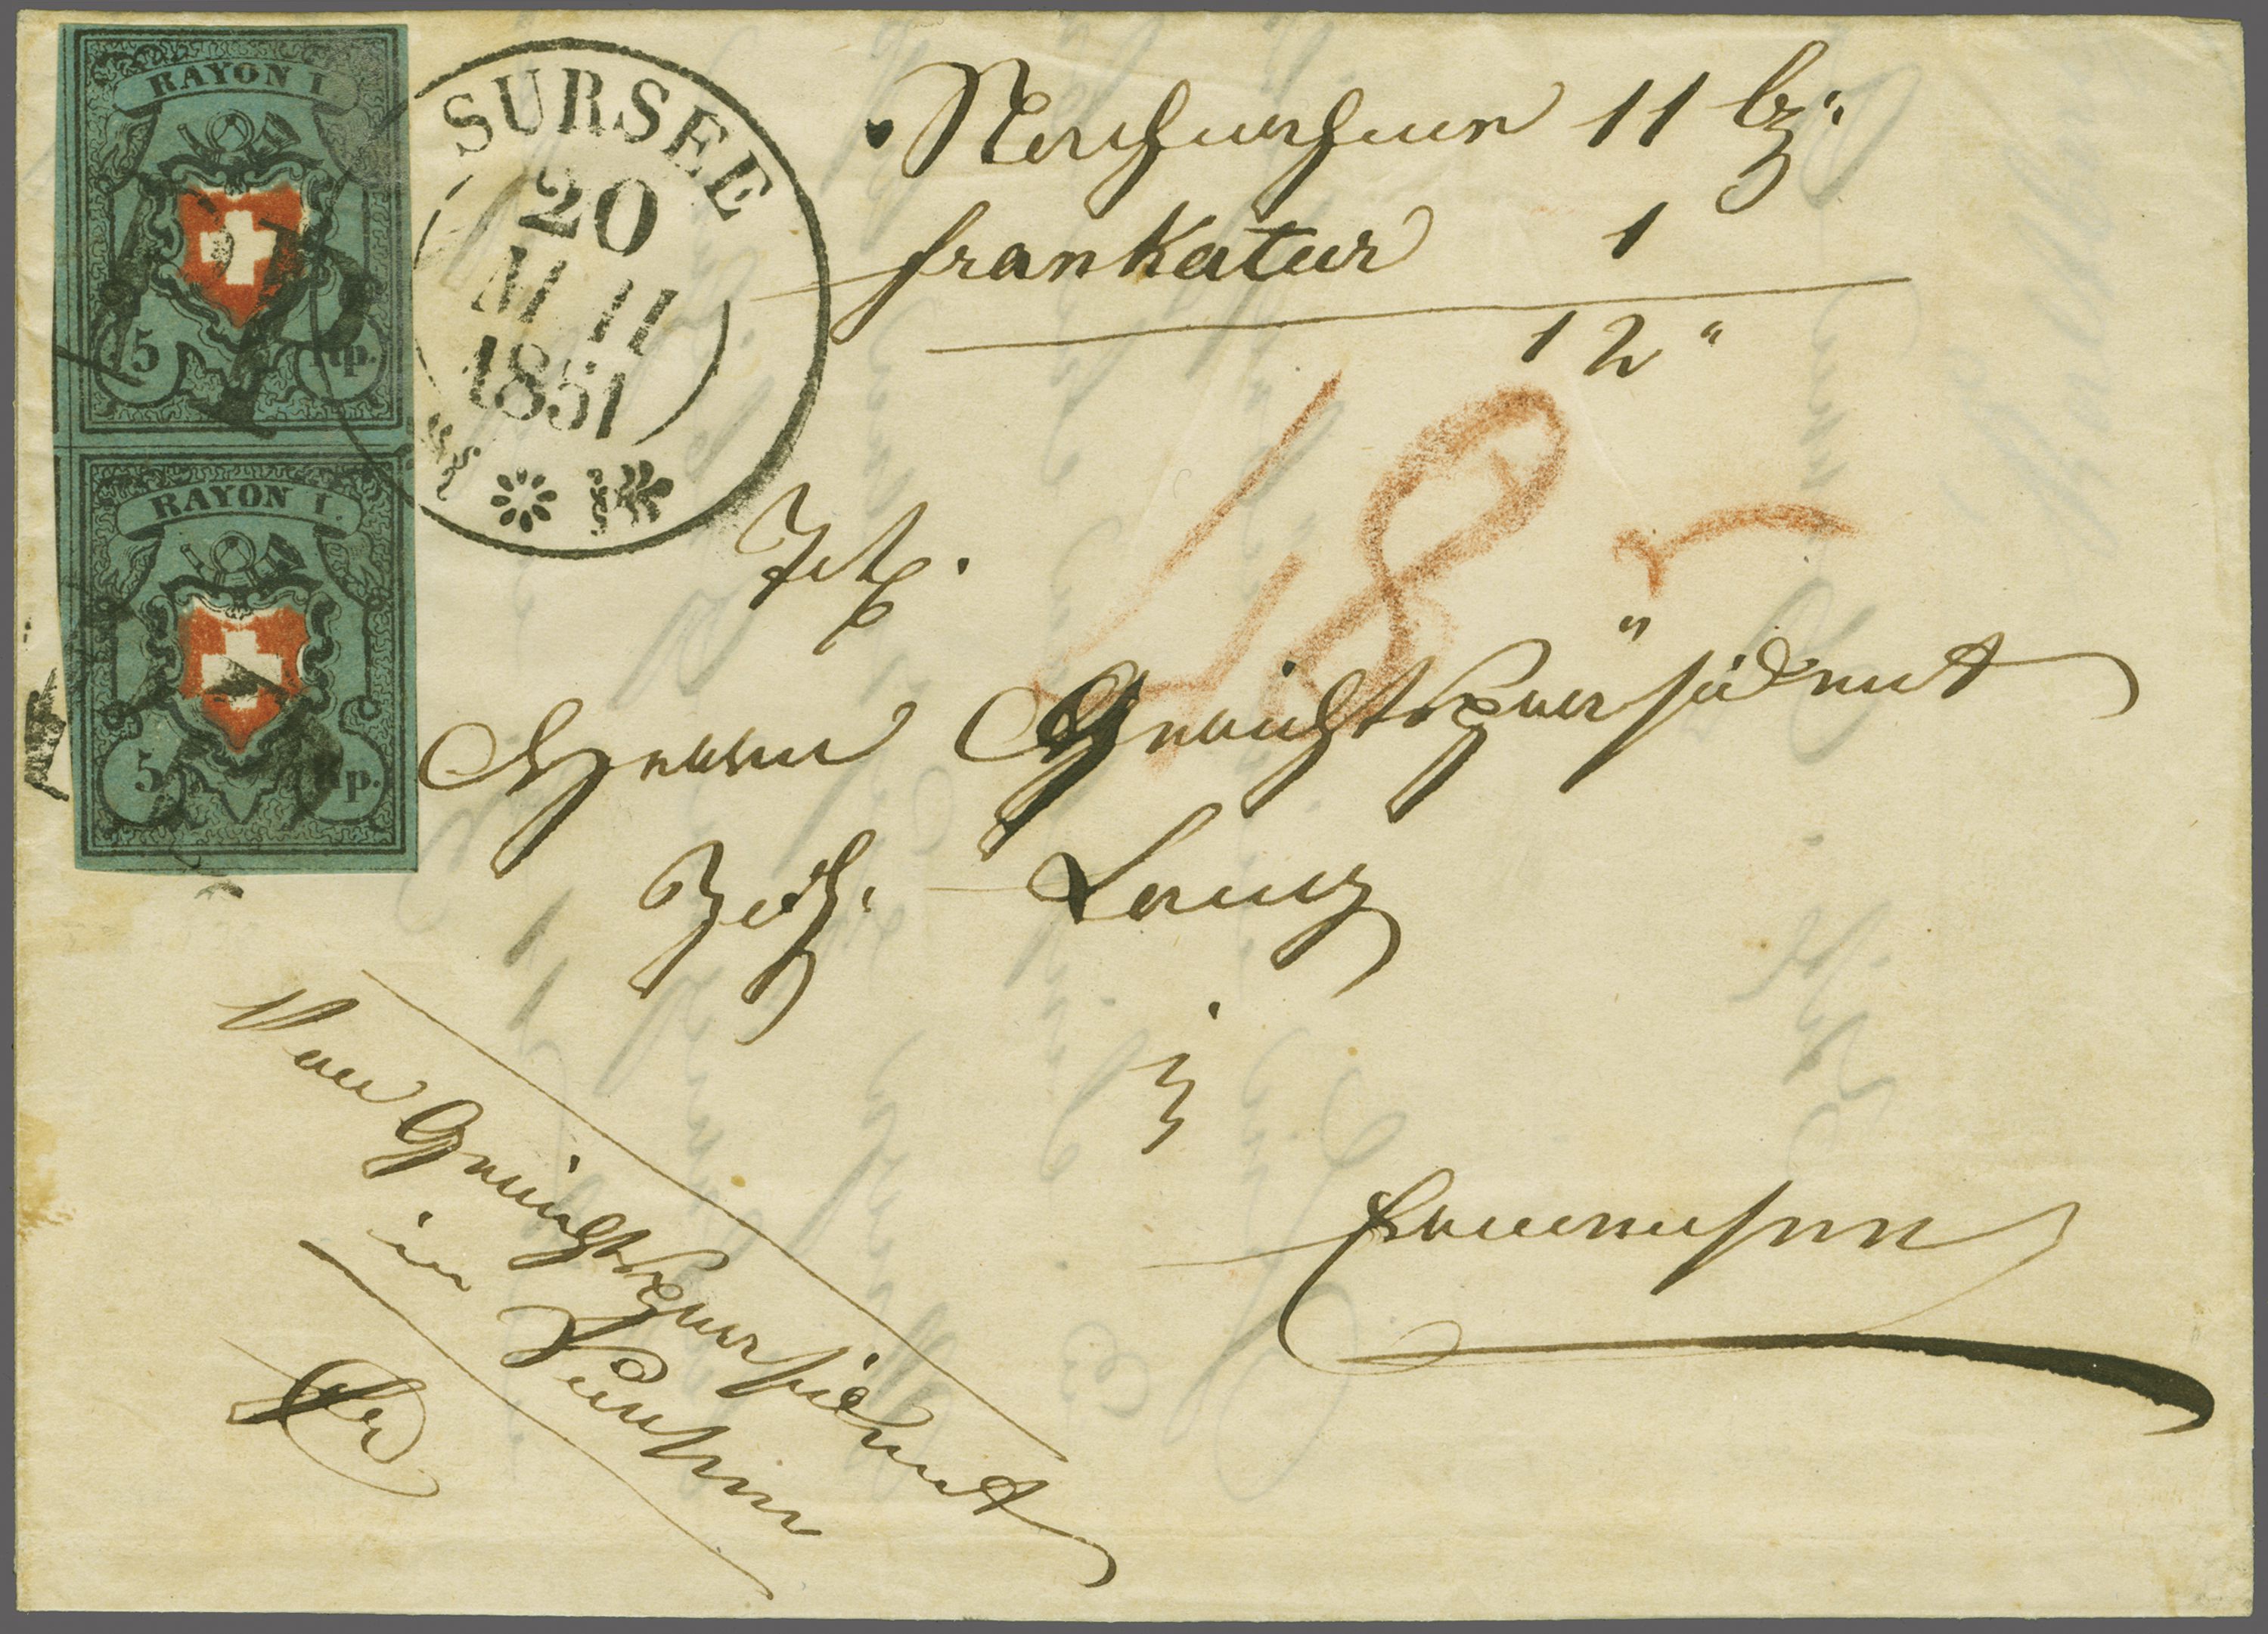 RAYON I.
5 Rp.
RAYON I.
5 Rp.
SURSEE
20
M 11
1851
Nachnahme 11 bz.
frankatur 1
12
18
Herrn Gerichtspräsident
Lang
in
Von Gerichtspräsident
in Sursee